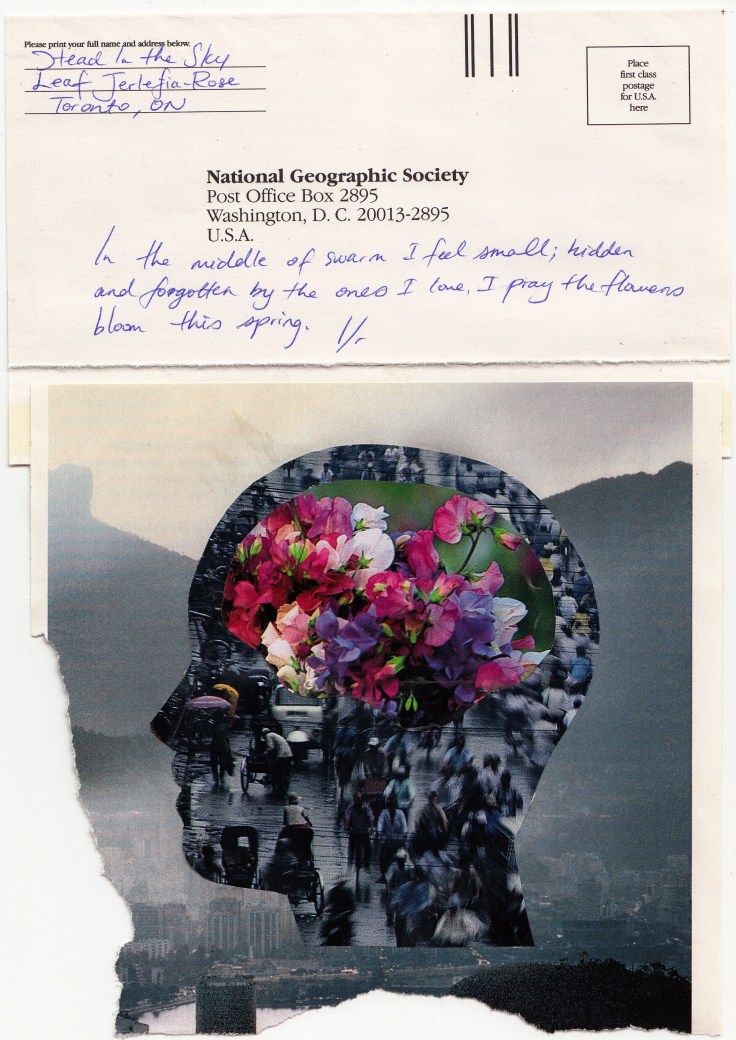 Please print your full name and address below.
Head In the Sky
Leaf Jerlefia-Rose
Toronto, ON
Place
first class
postage
for U.S.A.
here
National Geographic Society
Post Office Box 2895
Washington, D. C. 20013-2895
U.S.A.
In the middle of swarm I feel small; hidden
and forgotten by the ones I love. I pray the flowers
bloom this spring.